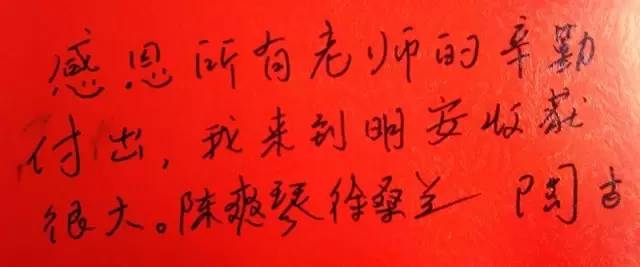 感恩所有老师的辛勤
付出，我来到明安收获
很大。陈爽琴徐桑兰 陶吉